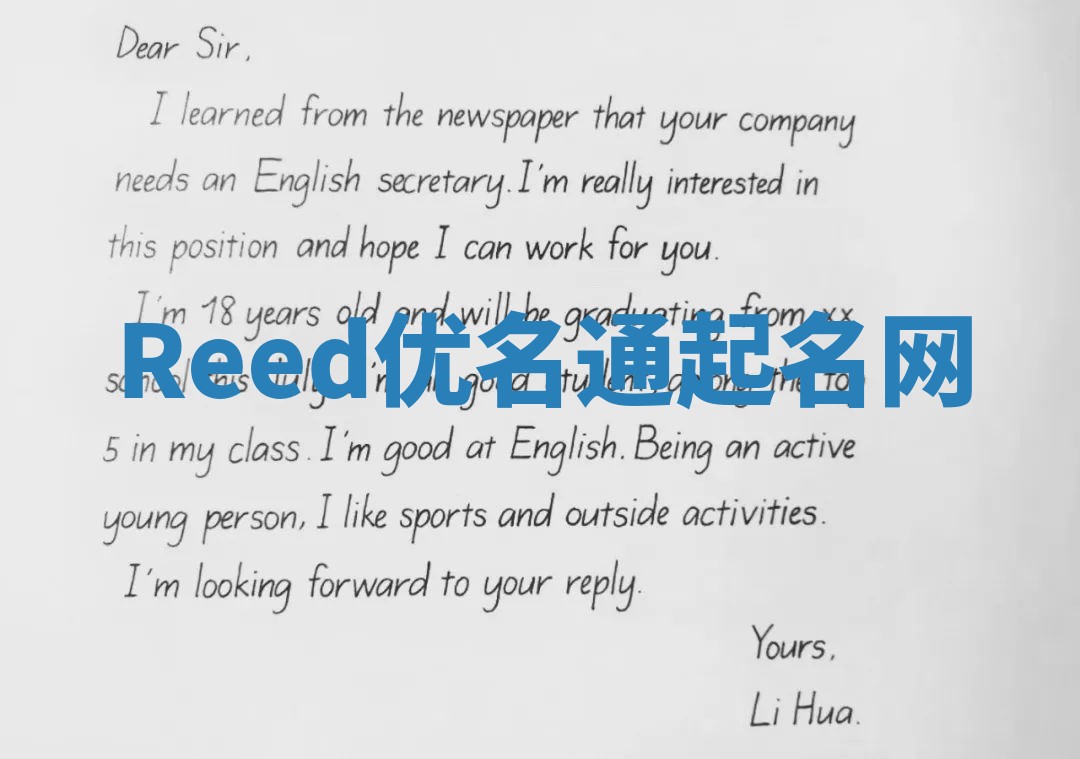 Dear Sir,
I learned from the newspaper that your company
needs an English secretary. I'm really interested in
this position and hope I can work for you.
I'm 18 years old and will be graduating from xx
Reed优名通起名网
school this July. I'm a good student, among the top
5 in my class. I'm good at English. Being an active
young person, I like sports and outside activities.
I'm looking forward to your reply.
Yours,
Li Hua.